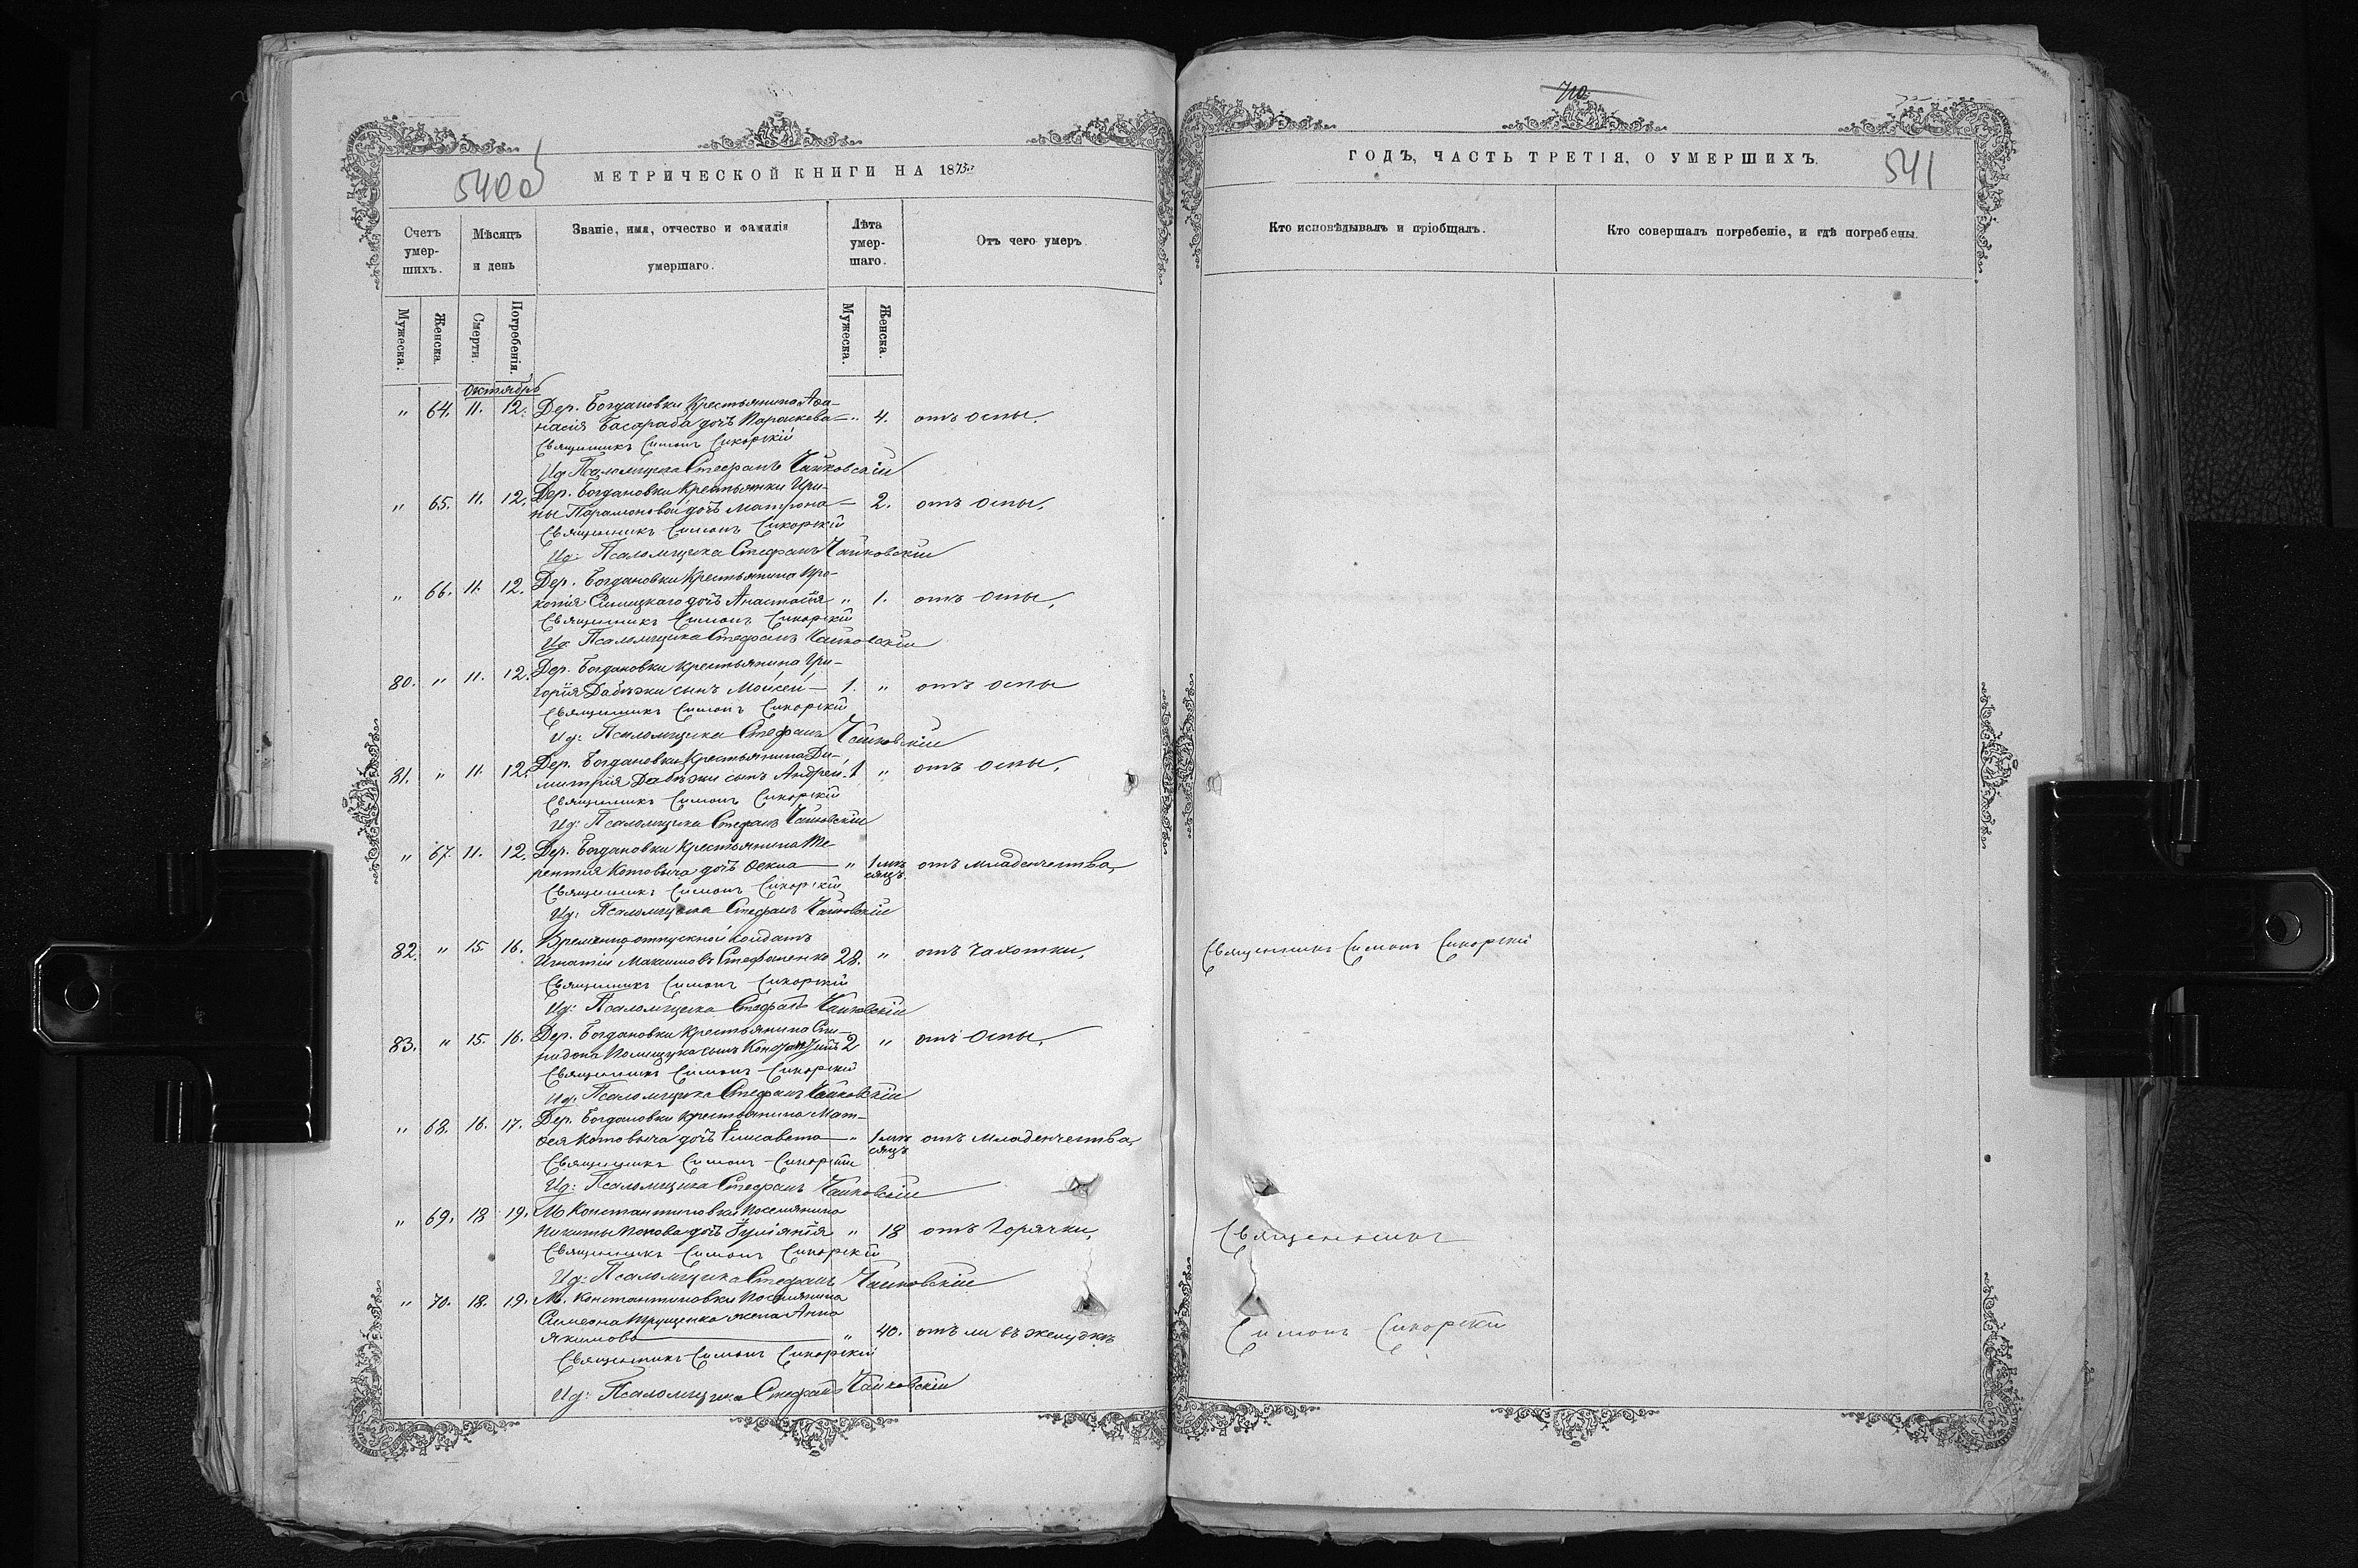 МЕТРИЧЕСКОЙ КНИГИ НА 1875.
540об
Счетъ умерших.
Мѣсяцъ и день
Званіе, имя, отчество и фамилія умершаго.
Лѣта умершаго.
Отъ чего умеръ
Мужеска.
Женска.
Смерти.
Погребенія.
Мужеска.
Женска.
Октябрь
" 64. 11. 12. Дер. Богдановки Крестьянина Аѳа-
насія Басараба дочь Параскева — " 4. отъ оспы.
Священникъ Симонъ Сикорскій
Ид. Псаломщика Стефанъ Чайковскій
" 65. 11. 12. Дер. Богдановки Крестьянки Ири-
ны Парамоновой дочь Матрона — 2. отъ оспы.
Священникъ Симонъ Сикорскій
Ид: Псаломщика Стефанъ Чайковскій
" 66. 11. 12. Дер. Богдановки Крестьянина Про-
копія дочь Анастасія " 1. отъ оспы.
Священникъ Симонъ Сикорскій
Ид. Псаломщика Стефанъ Чайковскій
80. " 11. 12. Дер. Богдановки Крестьянина Гри-
горія Дабѣжи сынъ Моисей — 1. " отъ оспы
Священникъ Симонъ Сикорскій
Ид: Псаломщика Стефанъ Чайковскій
81. " 11. 12. Дер. Богдановки Крестьянина Ди-
митрія Дабѣжи сынъ Андрей. 1 " отъ оспы.
Священникъ Симонъ Сикорскій
Ид: Псаломщика Стефанъ Чайковскій
" 67. 11. 12. Дер. Богдановки Крестьянина Те-
рентія Котовыча дочь Ѳекла — " 1 мѣ-
сяцъ. отъ младенчества,
Священникъ Симонъ Сикорскій
Ид: Псаломщика Стефанъ Чайковскій
82. " 15. 16. Временно отпускной солдатъ
Игнатій Максимовъ Стефаненко 28. " отъ чахотки,
Священникъ Симонъ Сикорскій
Ид: Псаломщика Стефанъ Чайковскій
83. " 15. 16. Дер. Богдановки Крестьянина Спи-
ридона Полищука сынъ 2 " отъ оспы,
Священникъ Симонъ Сикорскій
Ид. Псаломщика Стефанъ Чайковскій
" 68. 16. 17. Дер. Богдановки Крестьянина Мат-
ѳея Котовыча дочь Елисавета — " 1 мѣ-
сяцъ отъ младенчества,
Священникъ Симонъ Сикорскій
Ид: Псаломщика Стефанъ Чайковскій
" 69. 18 19. М. Константиновки Поселянина
Никиты Попова дочь Іуліанія " 18 отъ горячки,
Священникъ Симонъ Сикорскій
Ид: Псаломщика Стефанъ Чайковскій
" 70. 18. 19. М. Константиновки Поселянина
Симеона жена Анна
Якимова — " 40. отъ въ желудкѣ
Священникъ Симонъ Сикорскій
Ид: Псаломщика Стефанъ Чайковскій
ГОДЪ, ЧАСТЬ ТРЕТІЯ, О УМЕРШИХЪ.
541
Кто исповѣдывалъ и пріобщалъ.
Кто совершалъ погребеніе, и гдѣ погребены.
Священникъ Симонъ Сикорскій
Священникъ
Симонъ Сикорскій